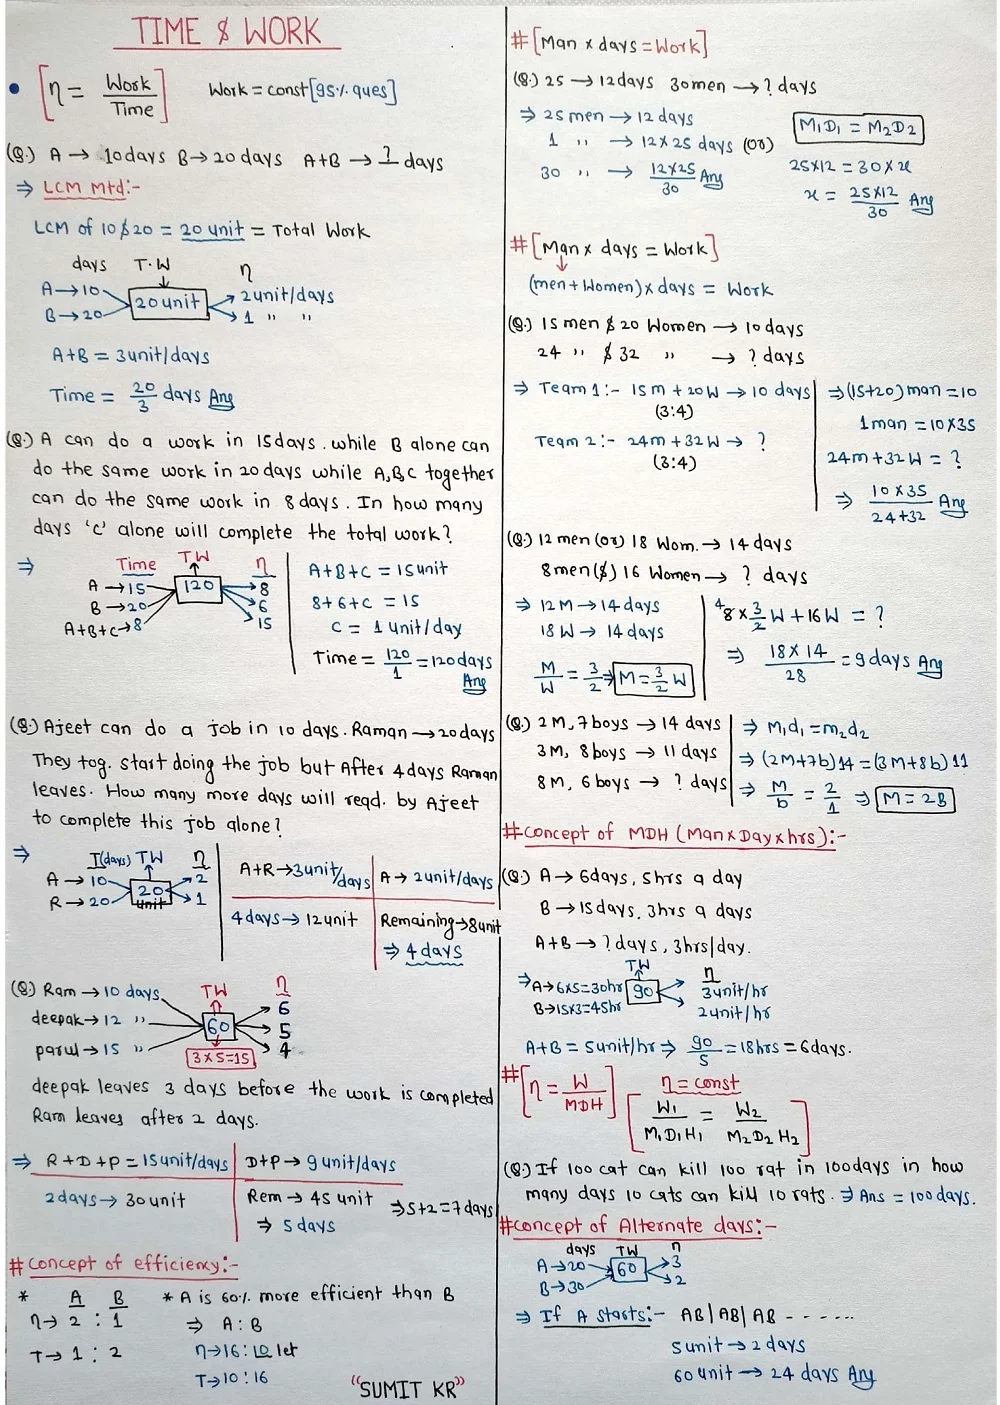 TIME & WORK
• [η = Work/Time] Work = const [95% ques]
(Q.) A → 10days B → 20 days A+B → ? days
⇒ LCM Mtd:-
LCM of 10 & 20 = 20 unit = Total Work
days T.W η
A → 10 20 unit 2 unit/days
B → 20 1 " "
A+B = 3 unit/days
Time = 20/3 days Ans
(Q.) A can do a work in 15 days. while B alone can
do the same work in 20 days while A,B,C together
can do the same work in 8 days. In how many
days 'c' alone will complete the total work?
⇒ Time TW η
A → 15 120 8
B → 20 6
A+B+C → 8 15
A+B+C = 15 unit
8+6+C = 15
C = 1 unit/day
Time = 120/1 = 120 days
Ans
(Q.) Ajeet can do a job in 10 days. Raman → 20 days
They tog. start doing the job but After 4 days Raman
leaves. How many more days will reqd. by Ajeet
to complete this job alone?
⇒ T(days) TW η
A → 10 20 unit 2
R → 20 1
A+R → 3 unit/days A → 2 unit/days
4 days → 12 unit Remaining → 8 unit
⇒ 4 days
(Q) Ram → 10 days TW η
6
deepak → 12 " 60 5
parul → 15 " 4
3 x 5 = 15
deepak leaves 3 days before the work is completed
Ram leaves after 2 days.
⇒ R+D+P = 15 unit/days D+P → 9 unit/days
2 days → 30 unit Rem → 45 unit ⇒ 5+2 = 7 days
⇒ 5 days
# concept of efficiency:-
* A B
η → 2 : 1
T → 1 : 2
* A is 60% more efficient than B
⇒ A : B
η → 16 : 10 let
T → 10 : 16
"SUMIT KR"
# [Man x days = Work]
(Q.) 25 → 12 days 30 men → ? days
⇒ 25 men → 12 days
1 " → 12 x 25 days (or)
30 " → 12x25/30 Ans
M1D1 = M2D2
25x12 = 30 x x
x = 25x12/30 Ans
# [Man x days = Work]
↓
(men + Women) x days = Work
(Q.) 15 men & 20 Women → 10 days
24 " & 32 " → ? days
⇒ Team 1:- 15m + 20W → 10 days
(3:4)
Team 2:- 24m + 32W → ?
(3:4)
⇒ (15+20) man = 10
1 man = 10 x 35
24m + 32W = ?
⇒ 10 x 35/24+32 Ans
(Q.) 12 men (or) 18 Wom. → 14 days
8 men (&) 16 Women → ? days
⇒ 12M → 14 days
18 W → 14 days
M/W = 3/2 ⇒ M = 3/2 W
4 8 x 3/2 W + 16W = ?
⇒ 18 x 14/28 = 9 days Ans
(Q.) 2M, 7 boys → 14 days
3M, 8 boys → 11 days
8M, 6 boys → ? days
⇒ M1d1 = m2d2
⇒ (2M+7b)14 = (3M+8b)11
⇒ M/b = 2/1 ⇒ M = 2B
# concept of MDH (Man x Day x hrs):-
(Q.) A → 6 days, 5 hrs a day
B → 15 days, 3 hrs a days
A+B → ? days, 3 hrs/day.
TW η
⇒ A → 6x5 = 30 hr 90 3 unit/hr
B → 15x3 = 45 hr 2 unit/hr
A+B = 5 unit/hr ⇒ 90/5 = 18 hrs = 6 days.
# [η = W/MDH] η = const
[W1/M1D1H1 = W2/M2D2H2]
(Q.) If 100 cat can kill 100 rat in 100 days in how
many days 10 cats can kill 10 rats. ⇒ Ans = 100 days.
# concept of Alternate days:-
days TW η
A → 20 60 3
B → 30 2
⇒ If A starts:- AB|AB|AB ------
5 unit → 2 days
60 unit → 24 days Ans